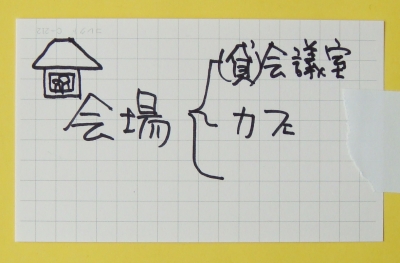 会場
(貸)会議室
カフェ